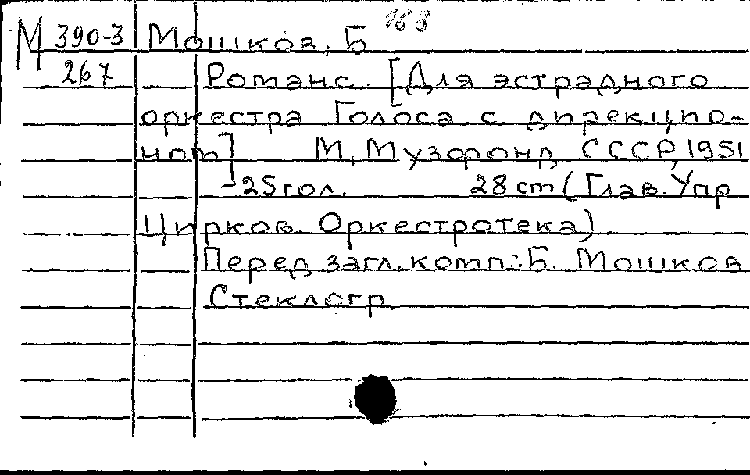 М 390-3 Мошков, Б
267 Романс. [Для эстрадного
оркестра Голоса с дирекцио-
ном] М, Музфонд СССР, 1951
25 гол. 28 cm (Глав. Упр
Цирков. Оркестротека)
Перед загл. комп.: Б. Мошков
Стеклогр.